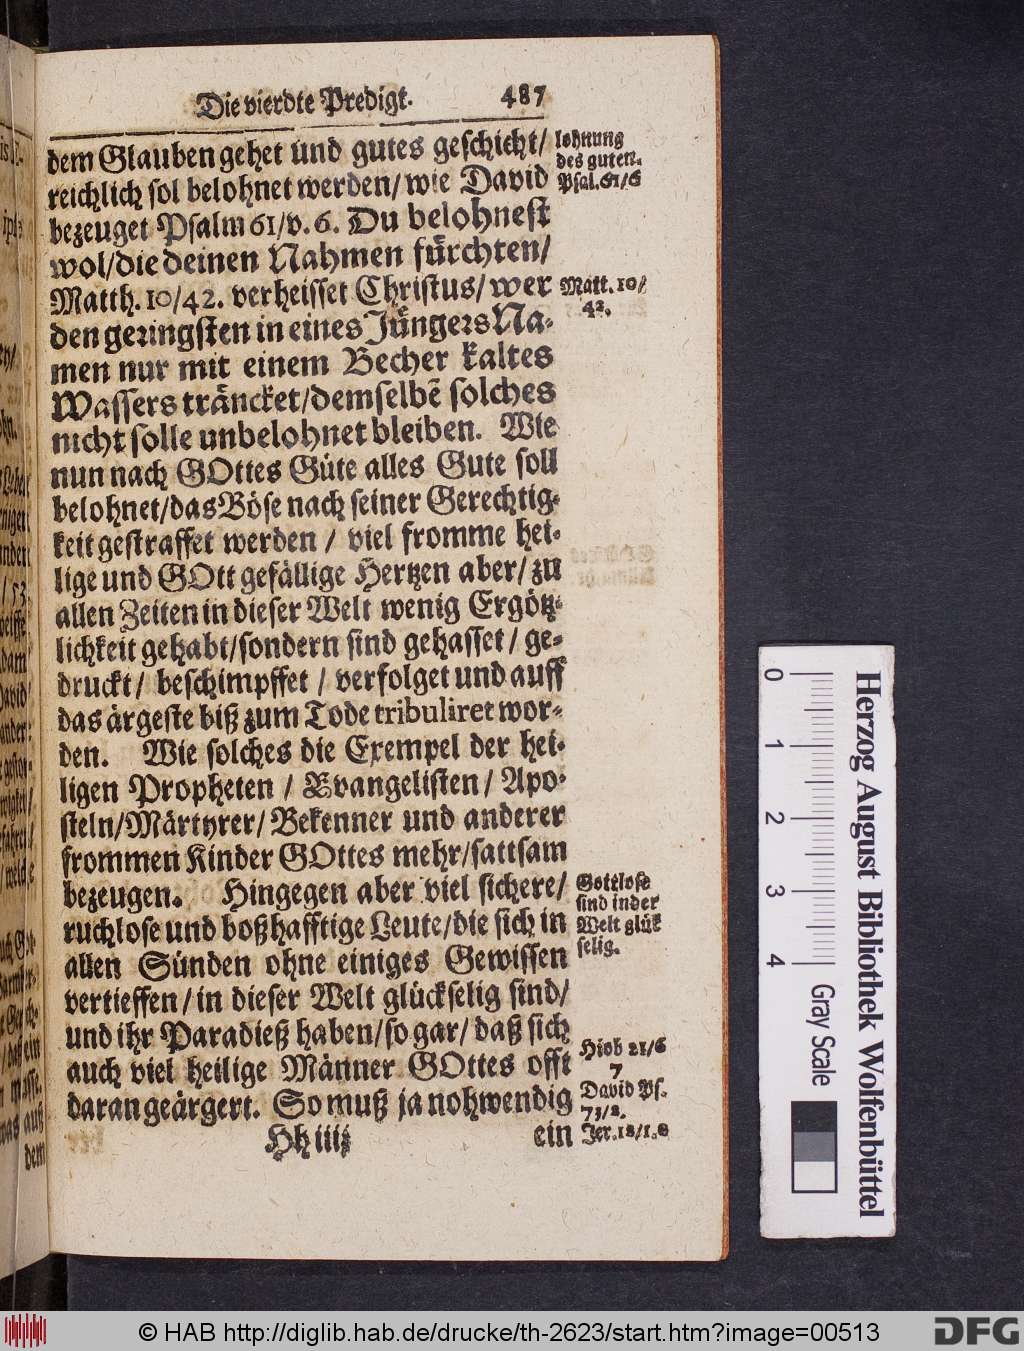 Die vierdte Predigt. 487
dem Glauben gehet und gutes geschicht/
reichlich sol belohnet werden/ wie David
bezeuget Psalm 61/v. 6. Du belohnest
wol/die deinen Nahmen fürchten/
Matth. 10/42. verheisset Christus/ wer
den geringsten in eines Jüngers Na-
men nur mit einem Becher kaltes
Wassers träncket/demselbẽ solches
nicht solle unbelohnet bleiben. Wie
nun nach GOttes Güte alles Gute soll
belohnet/das Böse nach seiner Gerechtig-
keit gestraffet werden / viel fromme hei-
lige und GOtt gefällige Hertzen aber/ zu
allen Zeiten in dieser Welt wenig Ergötz-
lichkeit gehabt/sondern sind gehasset / ge-
druckt / beschimpffet / verfolget und auff
das ärgeste biß zum Tode tribuliret wor-
den. Wie solches die Exempel der hei-
ligen Propheten / Evangelisten / Apo-
steln/Märtyrer/ Bekenner und anderer
frommen Kinder GOttes mehr/sattsam
bezeugen. Hingegen aber viel sichere/
ruchlose und boßhafftige Leute/die sich in
allen Sünden ohne einiges Gewissen
vertieffen / in dieser Welt glückselig sind/
und ihr Paradieß haben/so gar/ daß sich
auch viel heilige Männer GOttes offt
daran geärgert. So muß ja nohwendig
Hh iiij ein
lohnung
des guten.
Psal. 61/6
Matt. 10/
42.
Gottlose
sind in der
Welt glük
selig.
Hiob 21/6
7
David Ps.
73/2.
Jer. 18/1.8
0 1 2 3 4
Gray Scale
Herzog August Bibliothek Wolfenbüttel
© HAB http://diglib.hab.de/drucke/th-2623/start.htm?image=00513
DFG